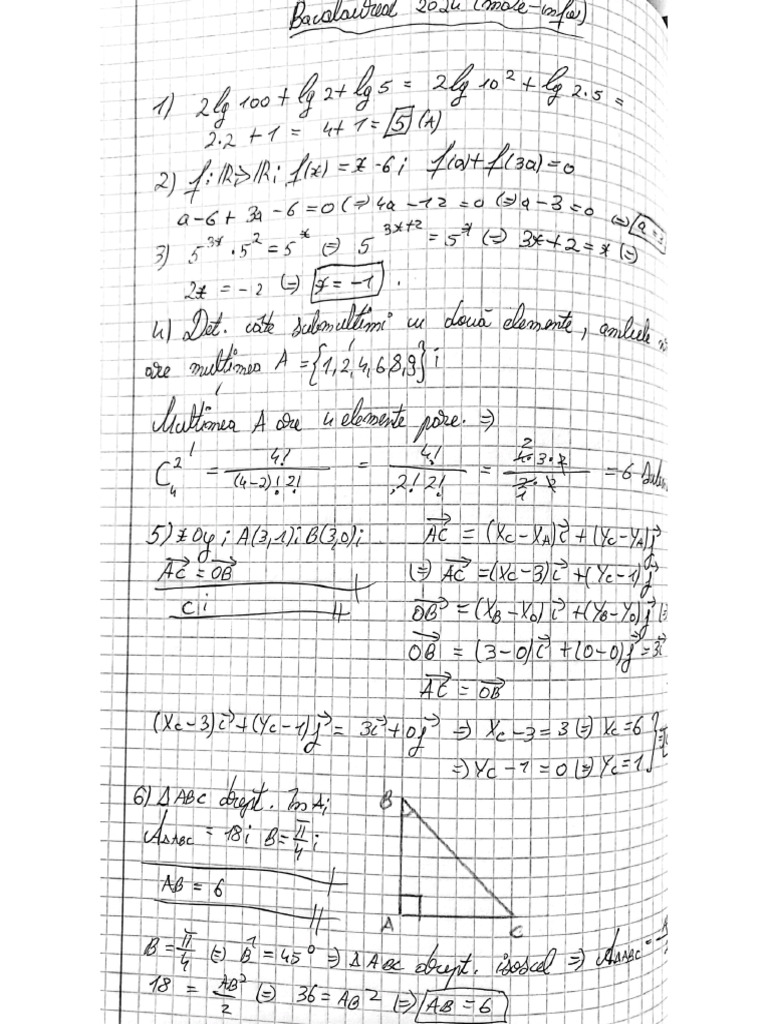 Bacalaureat 2024 (mate-info)
1) 2lg 100 + lg 2 + lg 5 = 2lg 10² + lg 2·5 =
2·2 + 1 = 4 + 1 = 5 (A)
2) f: ℝ→ℝ; f(x) = x - 6; f(a) + f(3a) = 0
a - 6 + 3a - 6 = 0 (=) 4a - 12 = 0 (=) a - 3 = 0 (=) a =
3) 5^{3x} · 5² = 5^x (=) 5^{3x+2} = 5^x (=) 3x + 2 = x (=)
2x = -2 (=) x = -1.
4) Det. câte submulțimi cu două elemente, ambele
are mulțimea A = {1, 2, 4, 6 8, 9};
Mulțimea A are 4 elemente pare. =>
C₄² = 4!/(4-2)! 2! = 4!/2! 2! = 4·3·2/2·2 = 6
5) xOy; A(3,1); B(3,0);
AC⃗ = OB⃗
C;
AC⃗ = (Xc - XA)i⃗ + (Yc - YA)j⃗
(=) AC⃗ = (Xc - 3)i⃗ + (Yc - 1)j⃗
OB⃗ = (XB - XO)i⃗ + (YB - YO)j⃗ (=
OB⃗ = (3 - 0)i⃗ + (0 - 0)j⃗ = 3i⃗
AC⃗ = OB⃗
(Xc - 3)i⃗ + (Yc - 1)j⃗ = 3i⃗ + 0j⃗ => Xc - 3 = 3 (=) Xc = 6
=> Yc - 1 = 0 (=) Yc = 1
6) ΔABC drept. în A;
AΔABC = 18; B = π/4;
AB = 6
B
A
C
B = π/4 (=) B̂ = 45° => ΔABC drept. isoscel => AΔABC =
18 = AB²/2 (=) 36 = AB² (=) AB = 6